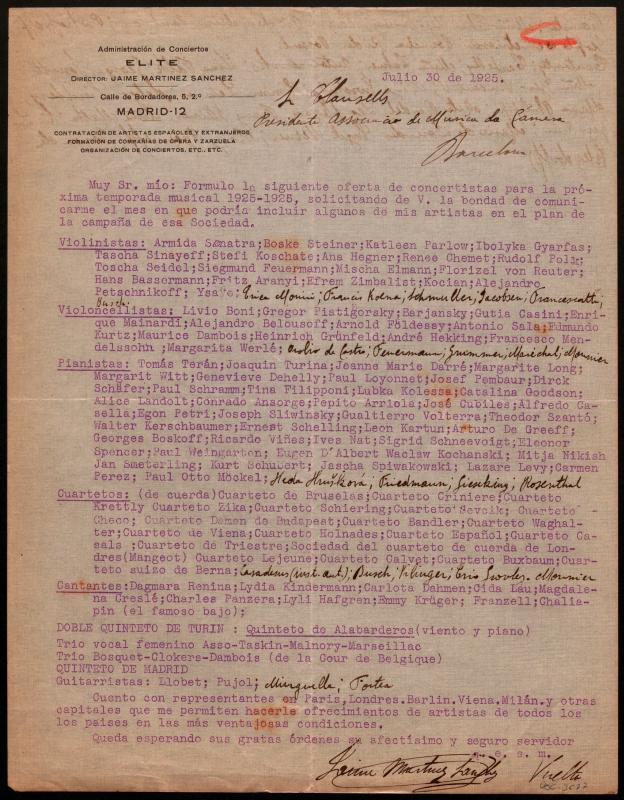 Administración de Conciertos
ELITE
DIRECTOR: JAIME MARTINEZ SANCHEZ
Calle de Bordadores, 5, 2.º
MADRID-12
CONTRATACIÓN DE ARTISTAS ESPAÑOLES Y EXTRANJEROS
FORMACIÓN DE COMPAÑÍAS DE ÓPERA Y ZARZUELA
ORGANIZACIÓN DE CONCIERTOS, ETC., ETC.
Julio 30 de 1925.
Presidente de Musica da Camera
Barcelona
Muy Sr. mío: Formulo la siguiente oferta de concertistas para la pró-
xima temporada musical 1925-1925, solicitando de V. la bondad de comuni-
carme el mes en que podría incluir algunos de mis artistas en el plan de
la campaña de esa Sociedad.
Violinistas: Armida Senatra;Boske Steiner;Katleen Parlow;Ibolyka Gyarfas;
Tascha Sinayeff;Stefi Koschate;Ana Hegner;Renee Chemet;Rudolf Polk;
Toscha Seidel;Siegmund Feuermann;Mischa Elmann;Florizel von Reuter;
Hans Bassermann;Fritz Aranyi;Efrem Zimbalit;Kocian;Alejandro
Petschnikoff; Ysaye; Erica Morini; Francis Koene; Schmuller; Jacobsen; Francescatti;
Busch;
Violoncellistas: Livio Boni;Gregor Piatigorsky;Barjansky;Gutia Casini;Enri-
que Mainardi;Alejandro Belousoff;Arnold Földessy;Antonio Sala;Edmundo
Kurtz;Maurice Dambois;Heinrich Grünfeld;André Hekking;Francesco Men-
delssohn ;Margarita Werlé; Feuermann; Grümmer; Maréchal; Mounier
Pianistas: Tomás Terán;Joaquin Turina;Jeanne Marie Darré;Margarite Long;
Margarit Witt;Genevieve Dehelly;Paul Loyonnet;Josef Pembaur;Dirck
Schäfer;Paul Schramm;Tina Filipponi;Lubka Kolessa;Catalina Goodson;
Alice Landolt;Conrado Ansorge;Pepito Arriola;José Cubiles;Alfredo Ca-
sella;Egon Petri;Joseph Sliwinsky;Gualtierro Volterra;Theodor Szantó;
Walter Kerschbaumer;Ernest Schelling;Leon Kartun;Arturo De Greeff;
Georges Boskoff;Ricardo Viñes;Ives Nat;Sigrid Schneevoigt;Eleonor
Spencer;Paul Weingarten; Eugen D'Albert Waclaw Kochanski; Mitja Nikish
Jan Smeterling; Kurt Schubert; Jascha Spiwakowski; Lazare Levy;Carmen
Perez; Paul Otto Möckel; Friedmann; Giesking; Rosenthal
Cuartetos: (de cuerda)Cuarteto de Bruselas;Cuarteto Criniere;Cuarteto
Krettly Cuarteto Zika;Cuarteto Schiering;Cuarteto Sevcik; Cuarteto -
Checo; Cuarteto Damen de Budapest;Cuarteto Bandler;Cuarteto Waghal-
ter;Cuarteto de Viena;Cuarteto Holnades;Cuarteto Español;Cuarteto Ca-
sals ;Cuarteto de Triestre;Sociedad del cuarteto de cuerda de Lon-
dres(Mangeot) Cuarteto Lejeune;Cuarteto Calvet;Cuarteto Buxbaum;Cuar-
teto suizo de Berna; Casadesus (inst. ant.); Busch; Klinger; Mounier
Cantantes:Dagmara Renina;Lydia Kindermann;Carlota Dahmen;Cida Lau;Magdale-
na Creslé;Charles Panzera;Lyli Hafgren;Emmy Krüger; Franzell;Ghalia-
pin (el famoso bajo);
DOBLE QUINTETO DE TURIN : Quinteto de Alabarderos(viento y piano)
Trio vocal femenino Asso-Taskin-Malnory-Marseillac
Trio Bosquet-Clokers-Dambois (de la Cour de Belgique)
QUINTETO DE MADRID
Guitarristas: Llobet; Pujol; Minguella; Fortea
Cuento con representantes en Paris,Londres.Barlin.Viena.Milán.y otras
capitales que me permiten hacerle ofrecimientos de artistas de todos los
los paises en las más ventajosas condiciones.
Queda esperando sus gratas órdenes su afectísimo y seguro servidor
q. e. s. m.
Jaime Martinez Sanchez
Vuelta